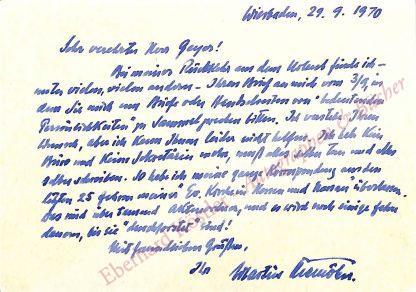 Wiesbaden, 29. 9. 1970
Sehr verehrter Herr Geyer!
Bei meiner Rückkehr aus dem Urlaub finde ich –
unter vielen, vielen anderen – Ihren Brief an mich vom 3/9, in
dem Sie mich um Briefe oder Handschriften von "bedeutenden
Persönlichkeiten" zu Sammelzwecken bitten. Ich verstehe Ihren
Wunsch, aber ich kann Ihnen leider nicht helfen. Ich habe kein
Büro und keine Sekretärin mehr, muß alles selber tun und alles
selber schreiben. So habe ich meine ganze Korrespondenz aus den
letzten 25 Jahren meiner Ev. Kirche in Hessen und Nassau überlassen.
Das sind über tausend Aktenordner, und es wird noch einige Jahre
dauern, bis sie "durchforstet" sind!
Mit freundlichen Grüßen
Ihr Martin Niemöller.
Eberhard Köstler Autographen Bücher